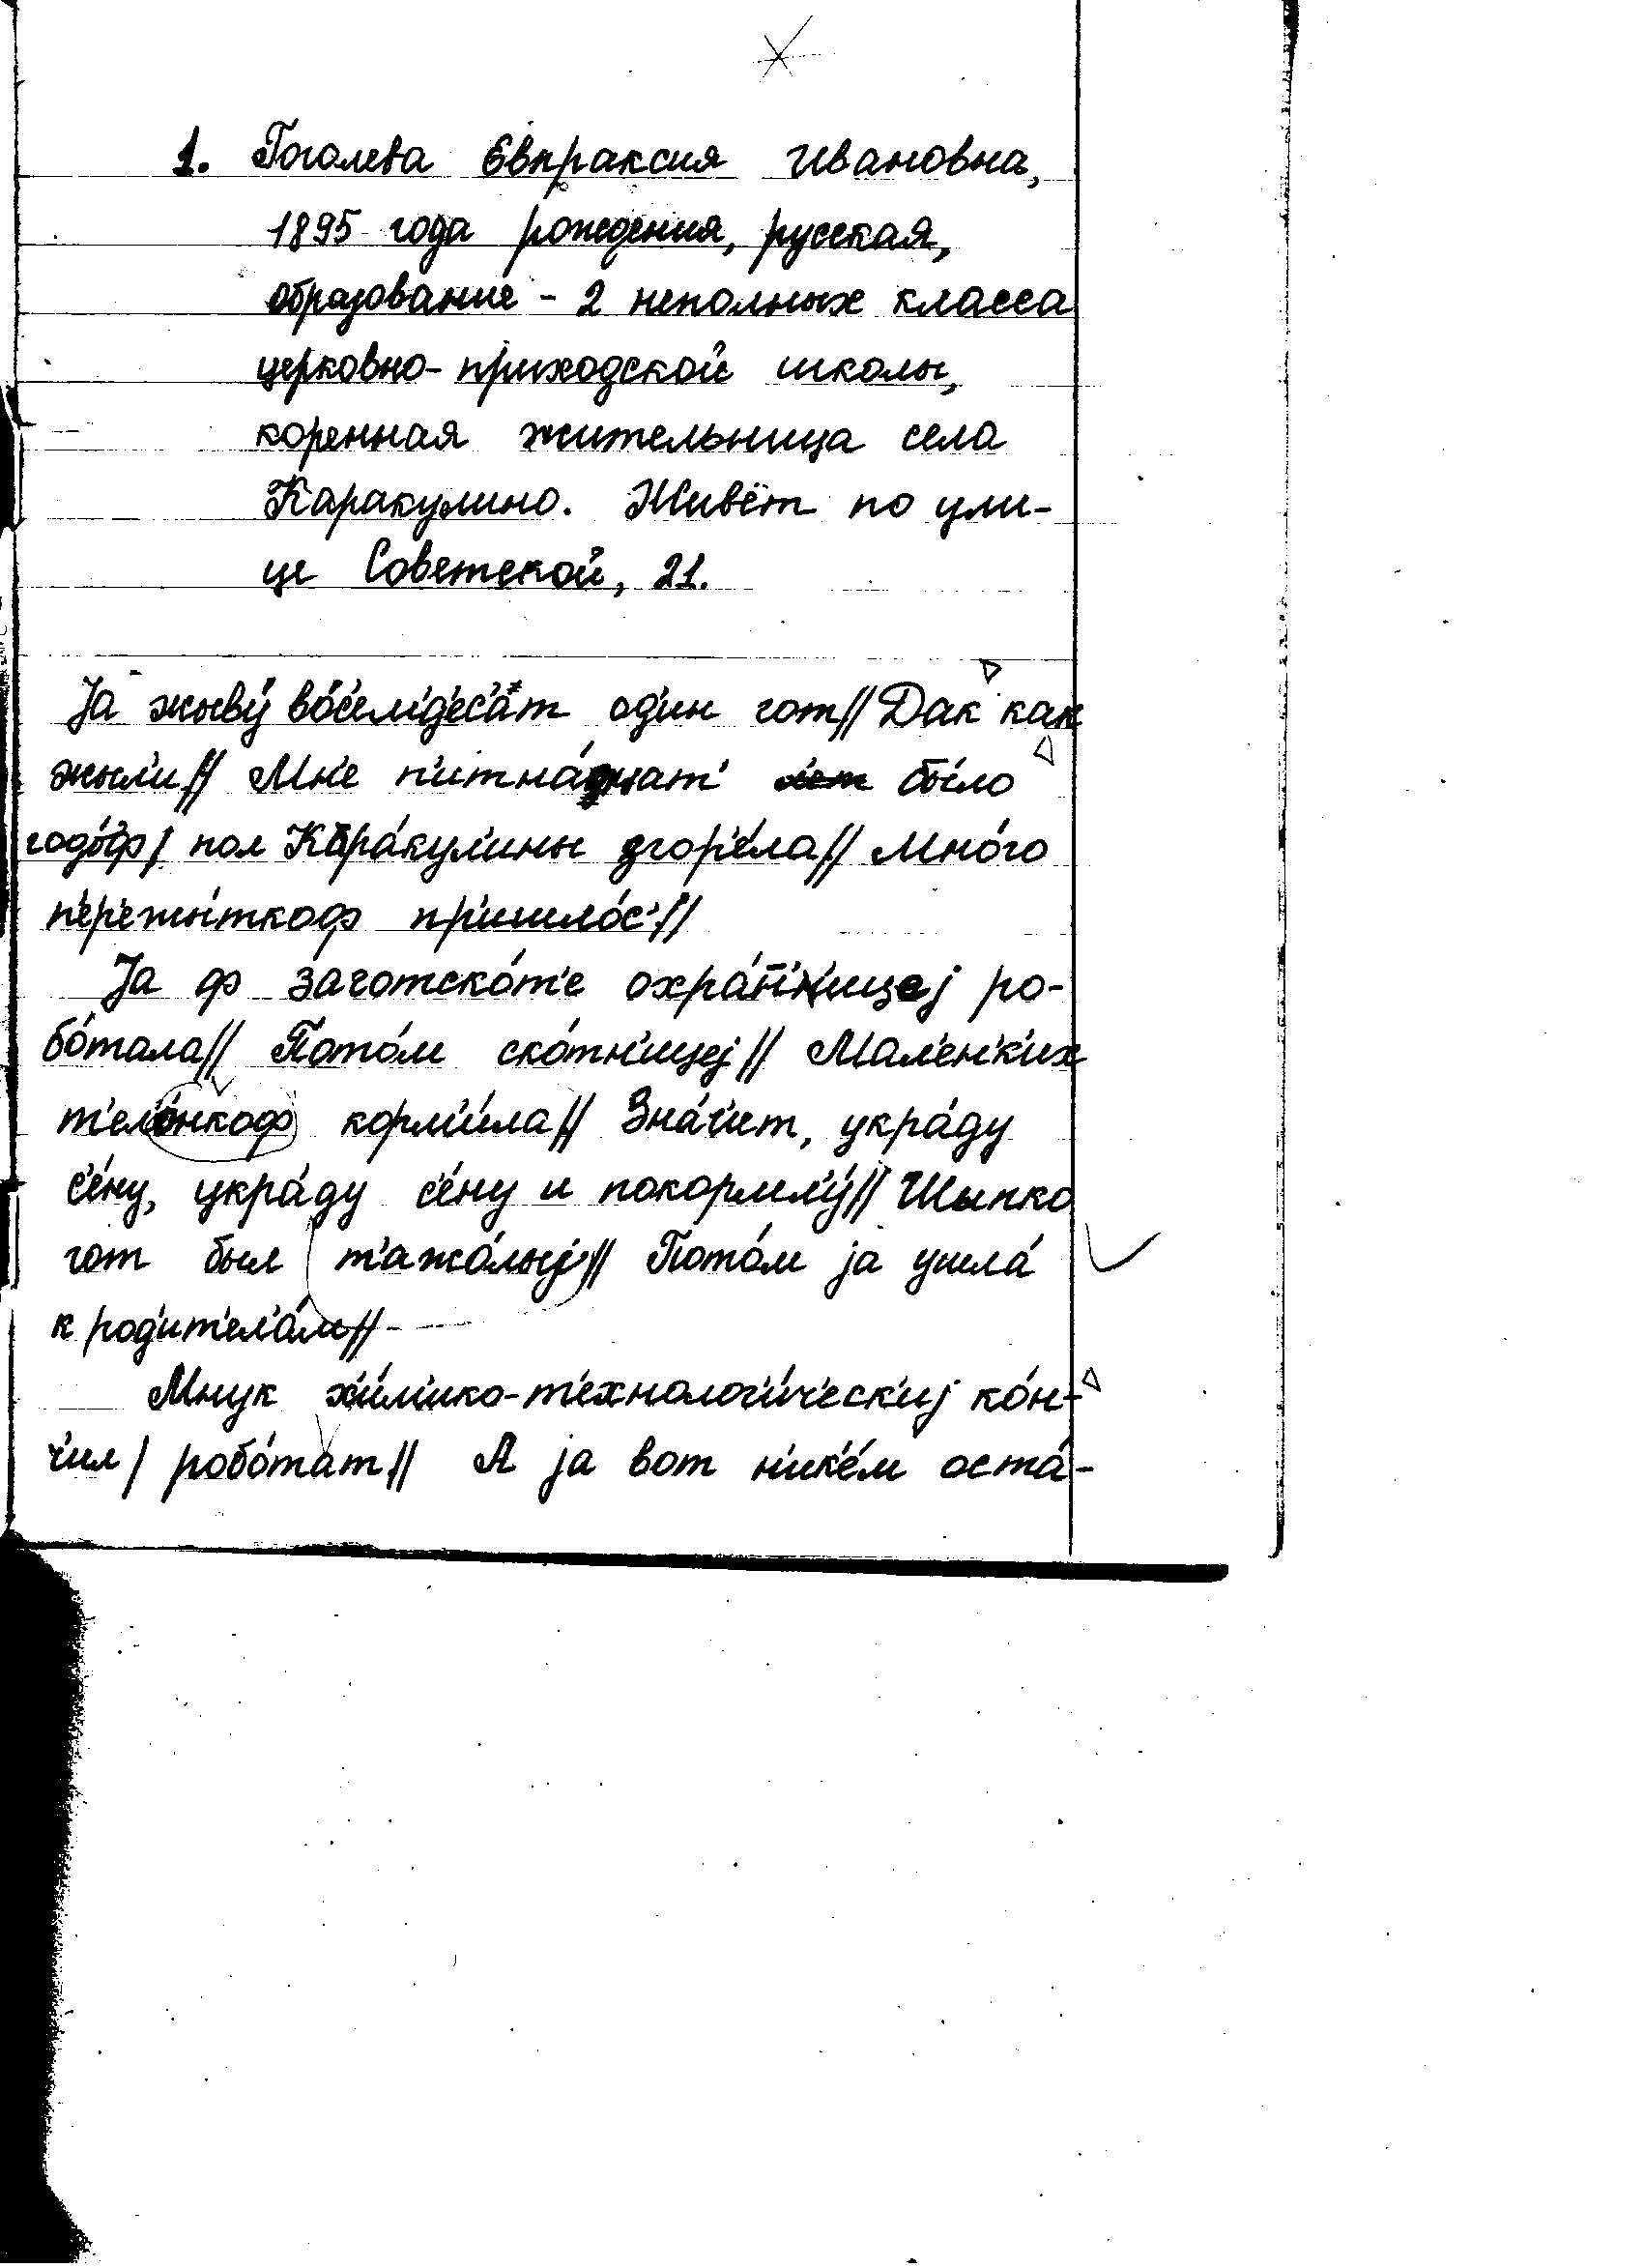 1. Гоголева Евпраксия Ивановна,
1895 года рождения, русская,
образование - 2 неполных класса
церковно-приходской школы,
коренная жительница села
Каракулино. Живёт по ули-
це Советской, 21.
Jа жывý во́с'ем'д'ес'ат од'ин гот// Дак как
жыл'и// Мн'е п'итна́цат' бы́ло
годо́ф/ пол Кара́кул'ины згор'е́ла// Мно́го
п'ер'ежы́ткоф пр'ишло́с'//
Jа ф заготско́т'е охра́н'ицеj ро-
бо́тала// Пото́м ско́тн'ицеj// Мал'ен'к'их
т'ел'о́нкоф корм'и́ла// Зна́ч'ит, укра́ду
с'е́ну, укра́ду с'е́ну и покормл'у́// Шыпко
гот был т'ажо́лыj// Пото́м jа ушла́
к род'ит'ел'а́м//
Мнук х'и́м'ико-т'ехнолог'и́ч'еск'иj ко́н-
ч'ил/ робо́тат// А jа вот н'ик'е́м оста́-